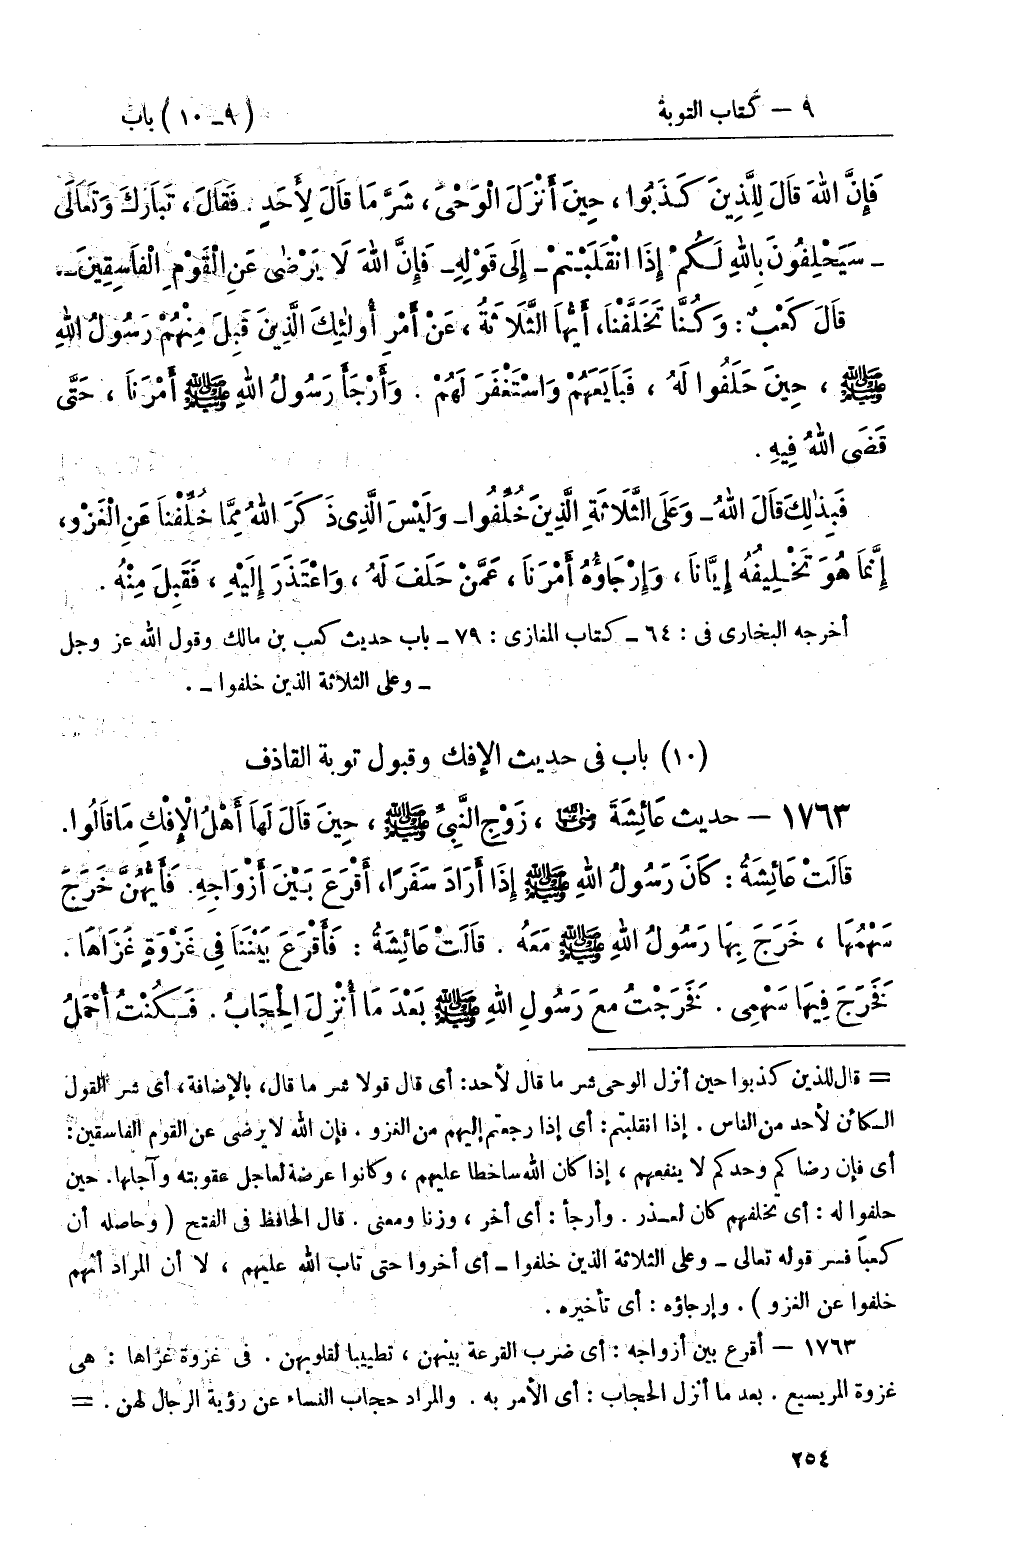 ٩ – كتاب التوبة (٩ – ١٠) باب
فَإِنَّ اللهَ قَالَ لِلَّذِينَ كَذَبُوا ، حِينَ أَنْزَلَ الْوَحْىَ ، شَرَّ مَا قَالَ لِأَحَدٍ . فَقَالَ ، تَبَارَكَ وَتَعَالَى
ـ سَيَحْلِفُونَ بِاللهِ لَكُمْ إِذَا انْقَلَبْتُمْ ـ إِلَى قَوْلِهِ ـ فَإِنَّ اللهَ لَا يَرْضٰى عَنِ الْقَوْمِ الْفَاسِقِينَ ـ .
قَالَ كَعْبٌ : وَكُنَّا تَخَلَّفْنَا، أَيُّهَا الثَّلَاثَةُ ، عَنْ أَمْرِ أُولٰئِكَ الَّذِينَ قَبِلَ مِنْهُمْ رَسُولُ اللهِ
ﷺ ، حِينَ حَلَفُوا لَهُ ، فَبَايَعَهُمْ وَاسْتَغْفَرَ لَهُمْ . وَأَرْجَأَ رَسُولُ اللهِ ﷺ أَمْرَنَا ، حَتَّى
قَضَى اللهُ فِيهِ .
فَبِذٰلِكَ قَالَ اللهُ ـ وَعَلَى الثَّلَاثَةِ الَّذِينَ خُلِّفُوا ـ وَلَيْسَ الَّذِى ذَكَرَ اللهُ مِمَّا خُلِّفْنَا عَنِ الْغَزْوِ،
إِنَّمَا هُوَ تَخْلِيفُهُ إِيَّانَا ، وَإِرْجَاؤُهُ أَمْرَنَا ، عَمَّنْ حَلَفَ لَهُ ، وَاعْتَذَرَ إِلَيْهِ ، فَقَبِلَ مِنْهُ .
أخرجه البخارى فى : ٦٤ ـ كتاب المغازى : ٧٩ ـ باب حديث كعب بن مالك وقول الله عز وجل
ـ وعلى الثلاثة الذين خلفوا ـ .
(١٠) باب فى حديث الإفك وقبول توبة القاذف
١٧٦٣ – حديث عَائِشَةَ رضي الله عنها ، زَوْجِ النَّبِيِّ ﷺ ، حِينَ قَالَ لَهَا أَهْلُ الْإِفْكِ مَا قَالُوا.
قَالَتْ عَائِشَةُ : كَانَ رَسُولُ اللهِ ﷺ إِذَا أَرَادَ سَفَرًا، أَقْرَعَ بَيْنَ أَزْوَاجِهِ. فَأَيُّهُنَّ خَرَجَ
سَهْمُهَا ، خَرَجَ بِهَا رَسُولُ اللهِ ﷺ مَعَهُ . قَالَتْ عَائِشَةُ : فَأَقْرَعَ بَيْنَنَا فِى غَزْوَةٍ غَزَاهَا .
فَخَرَجَ فِيهَا سَهْمِى . فَخَرَجْتُ مَعَ رَسُولِ اللهِ ﷺ بَعْدَ مَا أُنْزِلَ الْحِجَابُ . فَكُنْتُ أُحْمَلُ
= قال للذين كذبوا حين أنزل الوحى شر ما قال لأحد: أى قال قولا شر ما قال، بالإضافة، أى شر القول
الكائن لأحد من الناس . إذا انقلبتم: أى إذا رجعتم إليهم من الغزو . فإن الله لا يرضى عن القوم الفاسقين:
أى فإن رضاكم وحدكم لا ينفعهم ، إذا كان الله ساخطا عليهم ، وكانوا عرضة لعاجل عقوبته وآجلها. حين
حلفوا له : أى تخلفهم كان لعذر . وأرجأ : أى أخر ، وزنا ومعنى . قال الحافظ فى الفتح ( وحاصله أن
كعباً فسر قوله تعالى ـ وعلى الثلاثة الذين خلفوا ـ أى أخروا حتى تاب الله عليهم ، لا أن المراد أنهم
خلفوا عن الغزو ) . وإرجاؤه : أى تأخيره .
١٧٦٣ – أقرع بين أزواجه : أى ضرب القرعة بينهن ، تطييبا لقلوبهن . فى غزوة غزاها : هى
غزوة المريسيع . بعد ما أنزل الحجاب : أى الأمر به . والمراد حجاب النساء عن رؤية الرجال لهن . =
٢٥٤